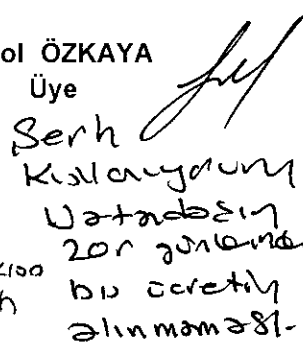 ol ÖZKAYA
Üye
Şerh
Kullanıyorum
Vatandaşın
zor günlerinde
bu ücretin
alınmaması.